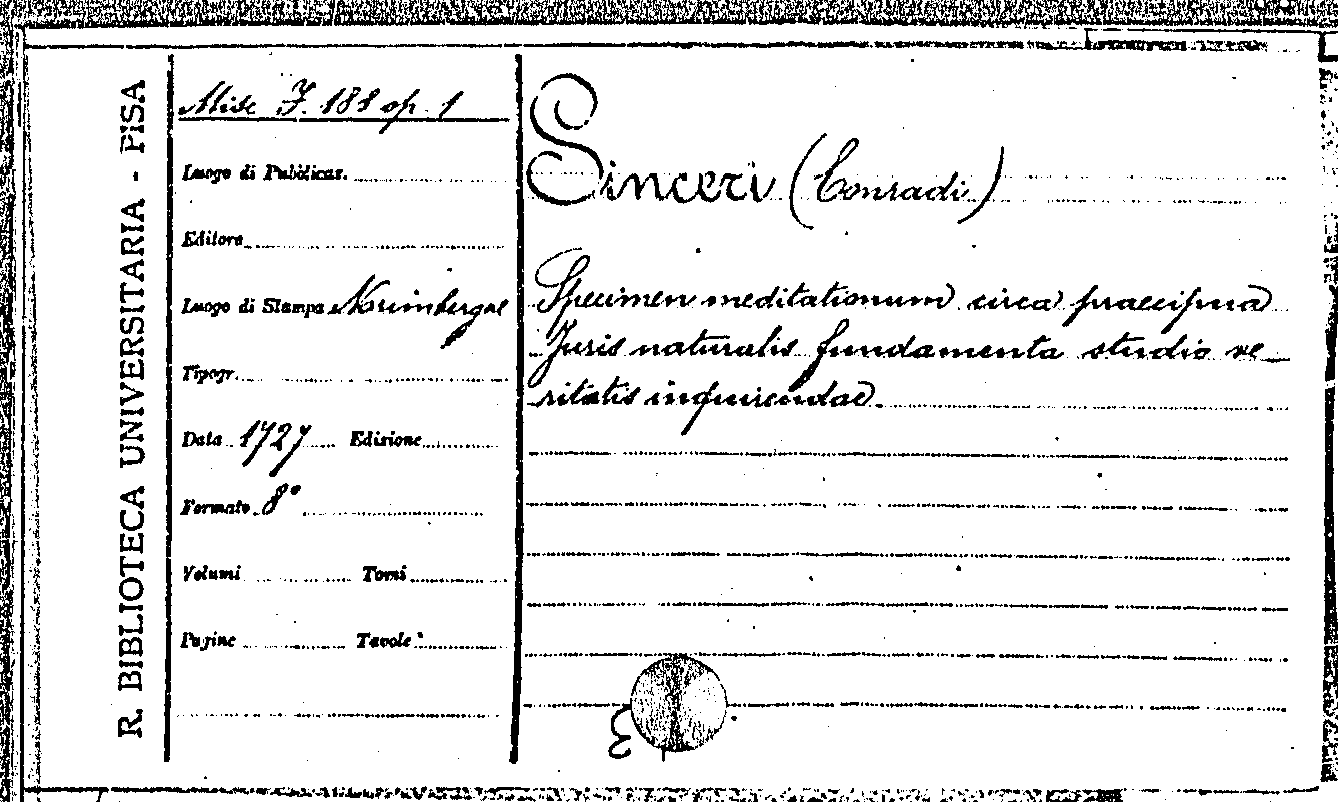 R. BIBLIOTECA UNIVERSITARIA - PISA
Misc J. 188 op. 1
Luogo di Pubblicaz.
Editore
Luogo di Stampa Norimbergae
Tipogr.
Data 1727 Edizione
Formato 8°
Volumi Tomi
Pagine Tavole
Sinceri (Conradi)
Specimen meditationum circa praecipua
Juris naturalis fundamenta studio ve_
ritatis inquirendae.